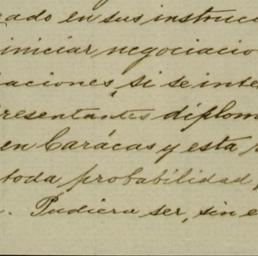 cado en sus instrucc
iniciar negociacio
iaciones, si se inte
resentantes diplom
en Carácas y esta
toda probabilidad,
Pudiera ser, sin e